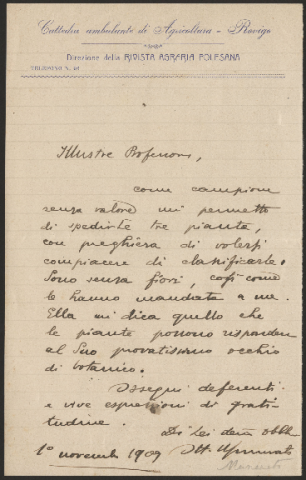 Cattedra ambulante di Agricoltura - Rovigo
Direzione della RIVISTA AGRARIA POLESANA
TELEFONO N.
Illustre Professore,
come campione
senza valore mi permetto
di spedirle tre piante,
con preghiera di volersi
compiacere di classificarle.
Sono senza fiori, così come
le hanno mandate a me.
Ella mi dica quello che
le piante possono rispondere
al Suo provatissimo occhio
di botanico.
Ossequi deferenti
e vive espressioni di grati-
tudine.
Di Lei dev.
1° novembre 1909 Ott.